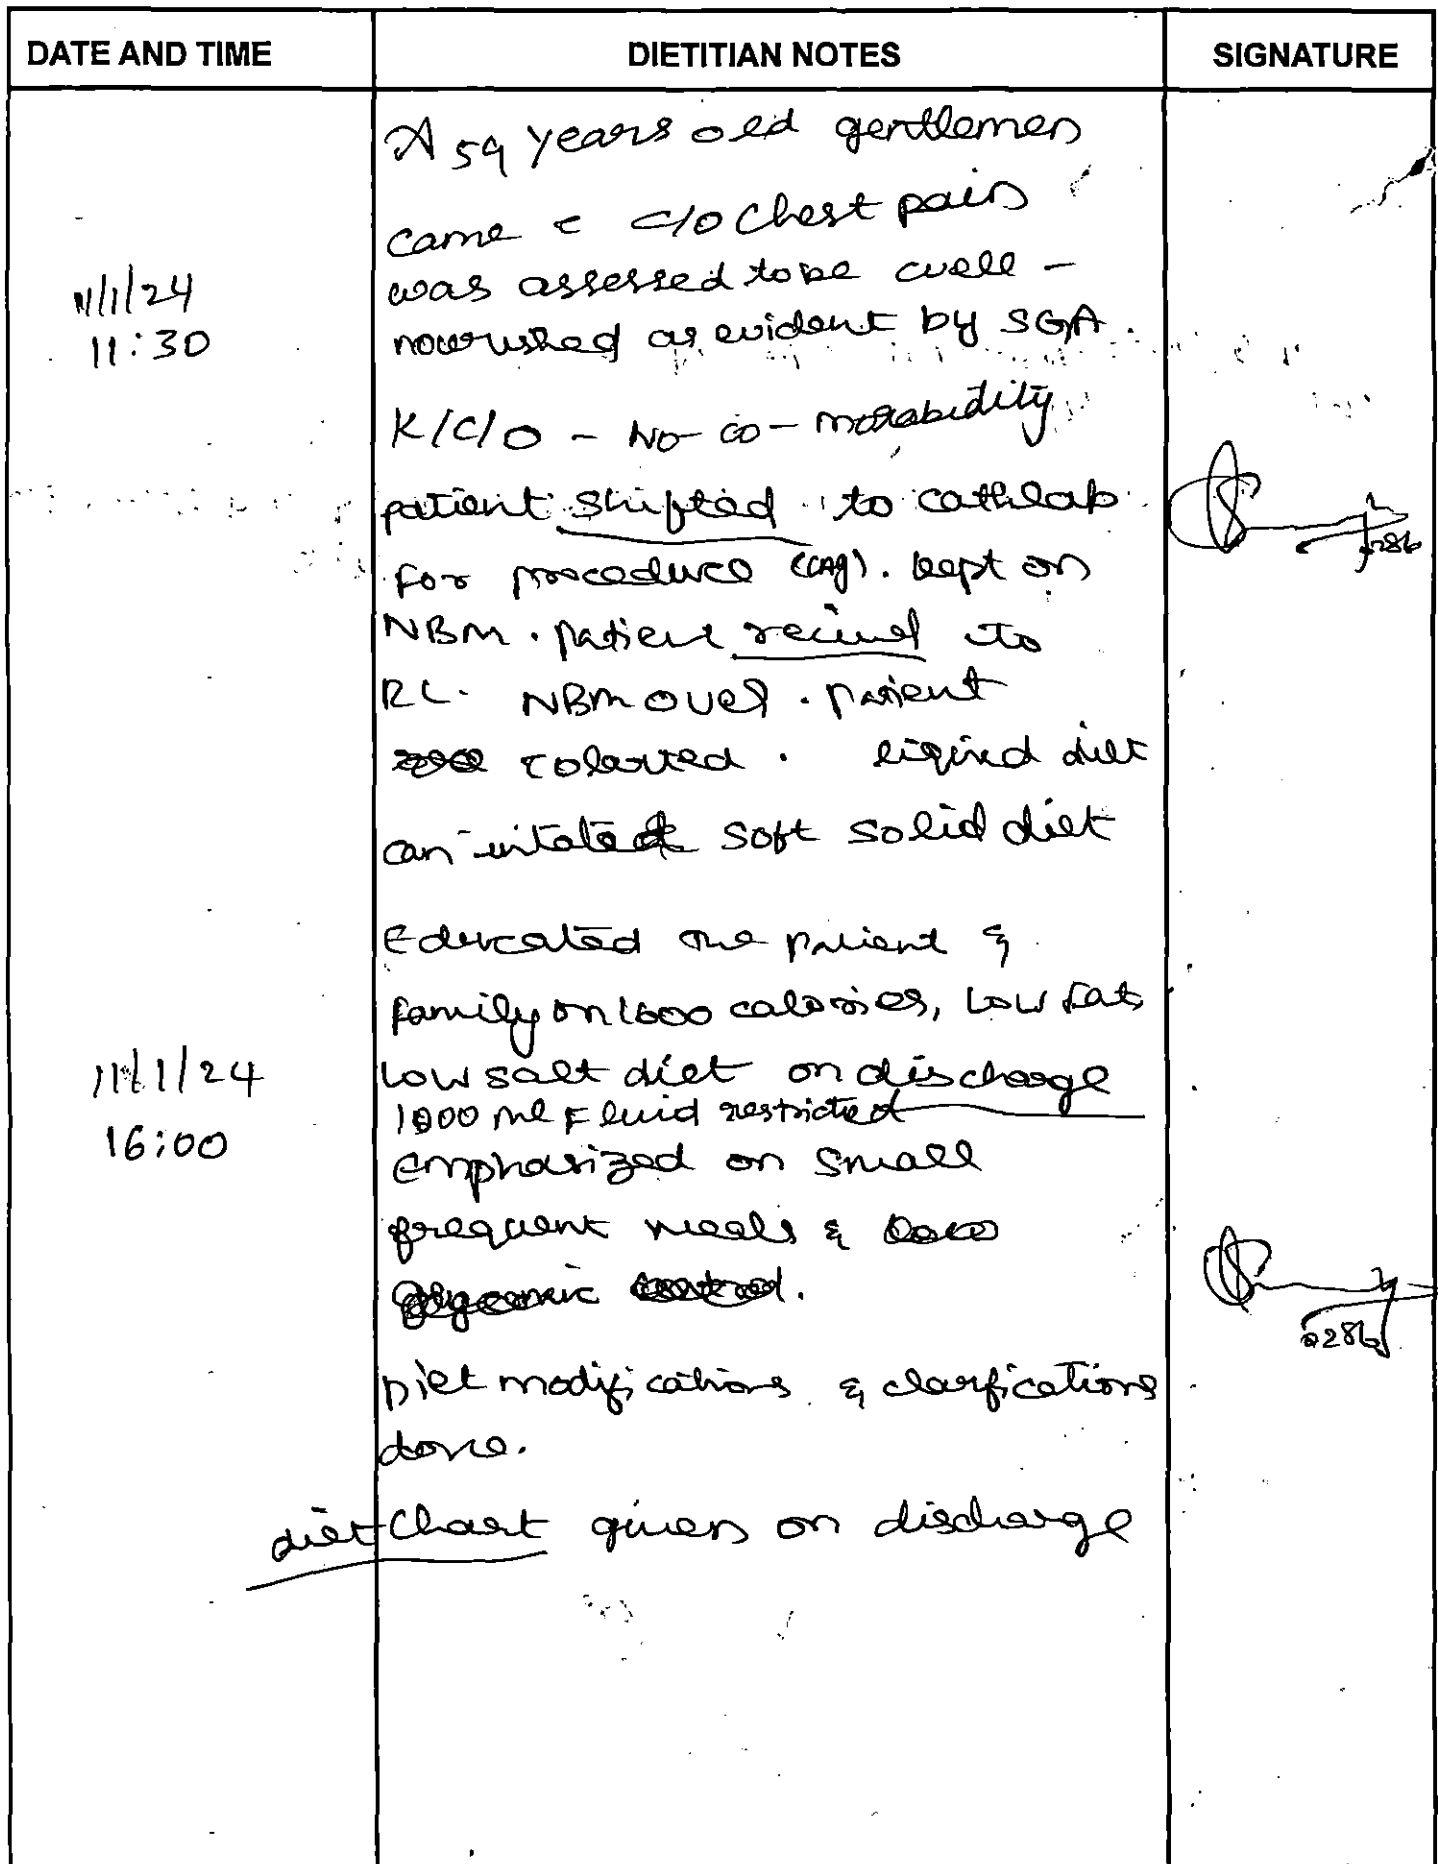 DATE AND TIME DIETITIAN NOTES SIGNATURE
A 59 years old gentlemen
came c c/o Chest pain
was assessed to be well -
11/1/24
nourished as evident by SGA.
11:30
K/C/O - No co-morabidity
patient shifted to cathlab
for procedure (CAg). kept on
0286
NBM. patient to
RL. NBM over. patient
tolarted. liqiud diet
can intated soft solid diet
Educated the patient &
family on 1600 calories, low fat
11/1/24
low salt diet on discharge
1000 ml Fluid restricted
16:00
emphasized on small
frequent meals &
0286
Diet modifications & clarfications
done.
diet Chart given on discharge